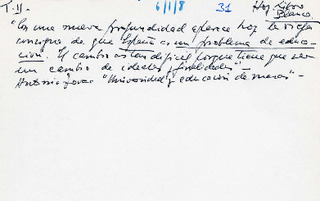 T-II- 6/1/8 31 Hoj. Libro
Blanco
"Con una nueva profundidad aparece hoy la vieja
consigna de que España es un problema de educa-
ción. El cambio es tan difícil porque tiene que ser
un cambio de ideales y finalidades"-
Antonio "Universidad y educación de masas"-